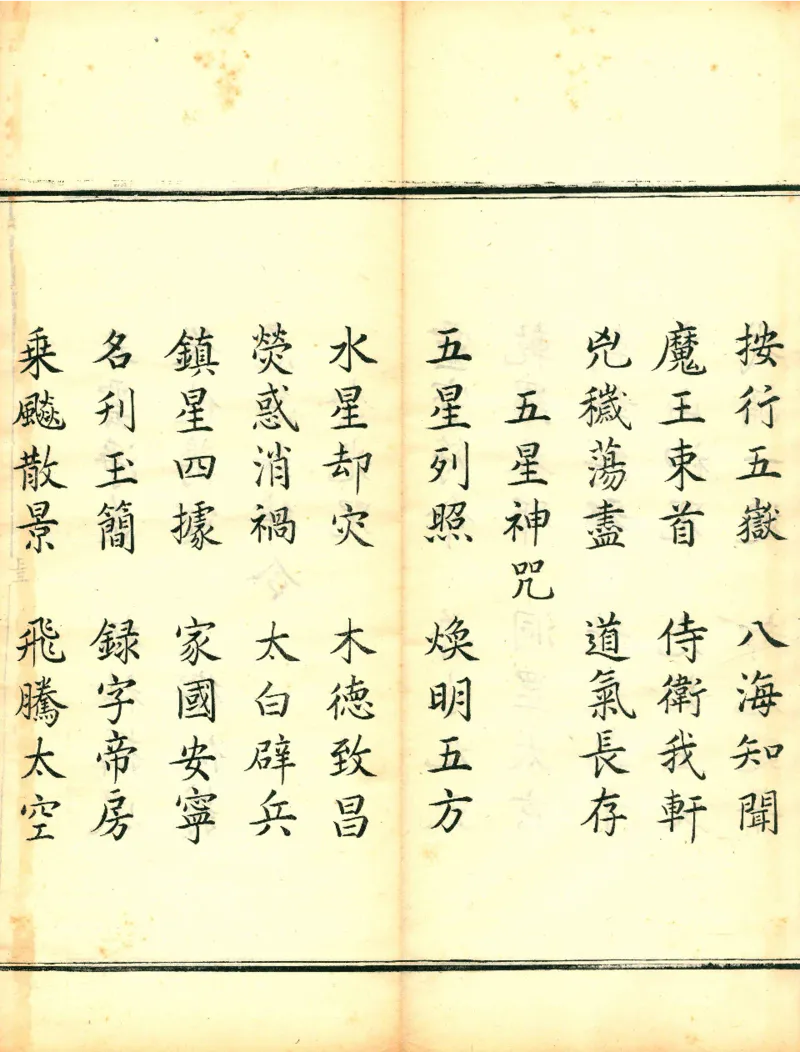 按行五嶽 八海知聞
魔王束首 侍衛我軒
兇穢蕩盡 道氣長存
五星神咒
五星列照 煥明五方
水星却灾 木德致昌
熒惑消禍 太白辟兵
鎮星四據 家國安寧
名刊玉簡 録字帝房
乗飈散景 飛騰太空